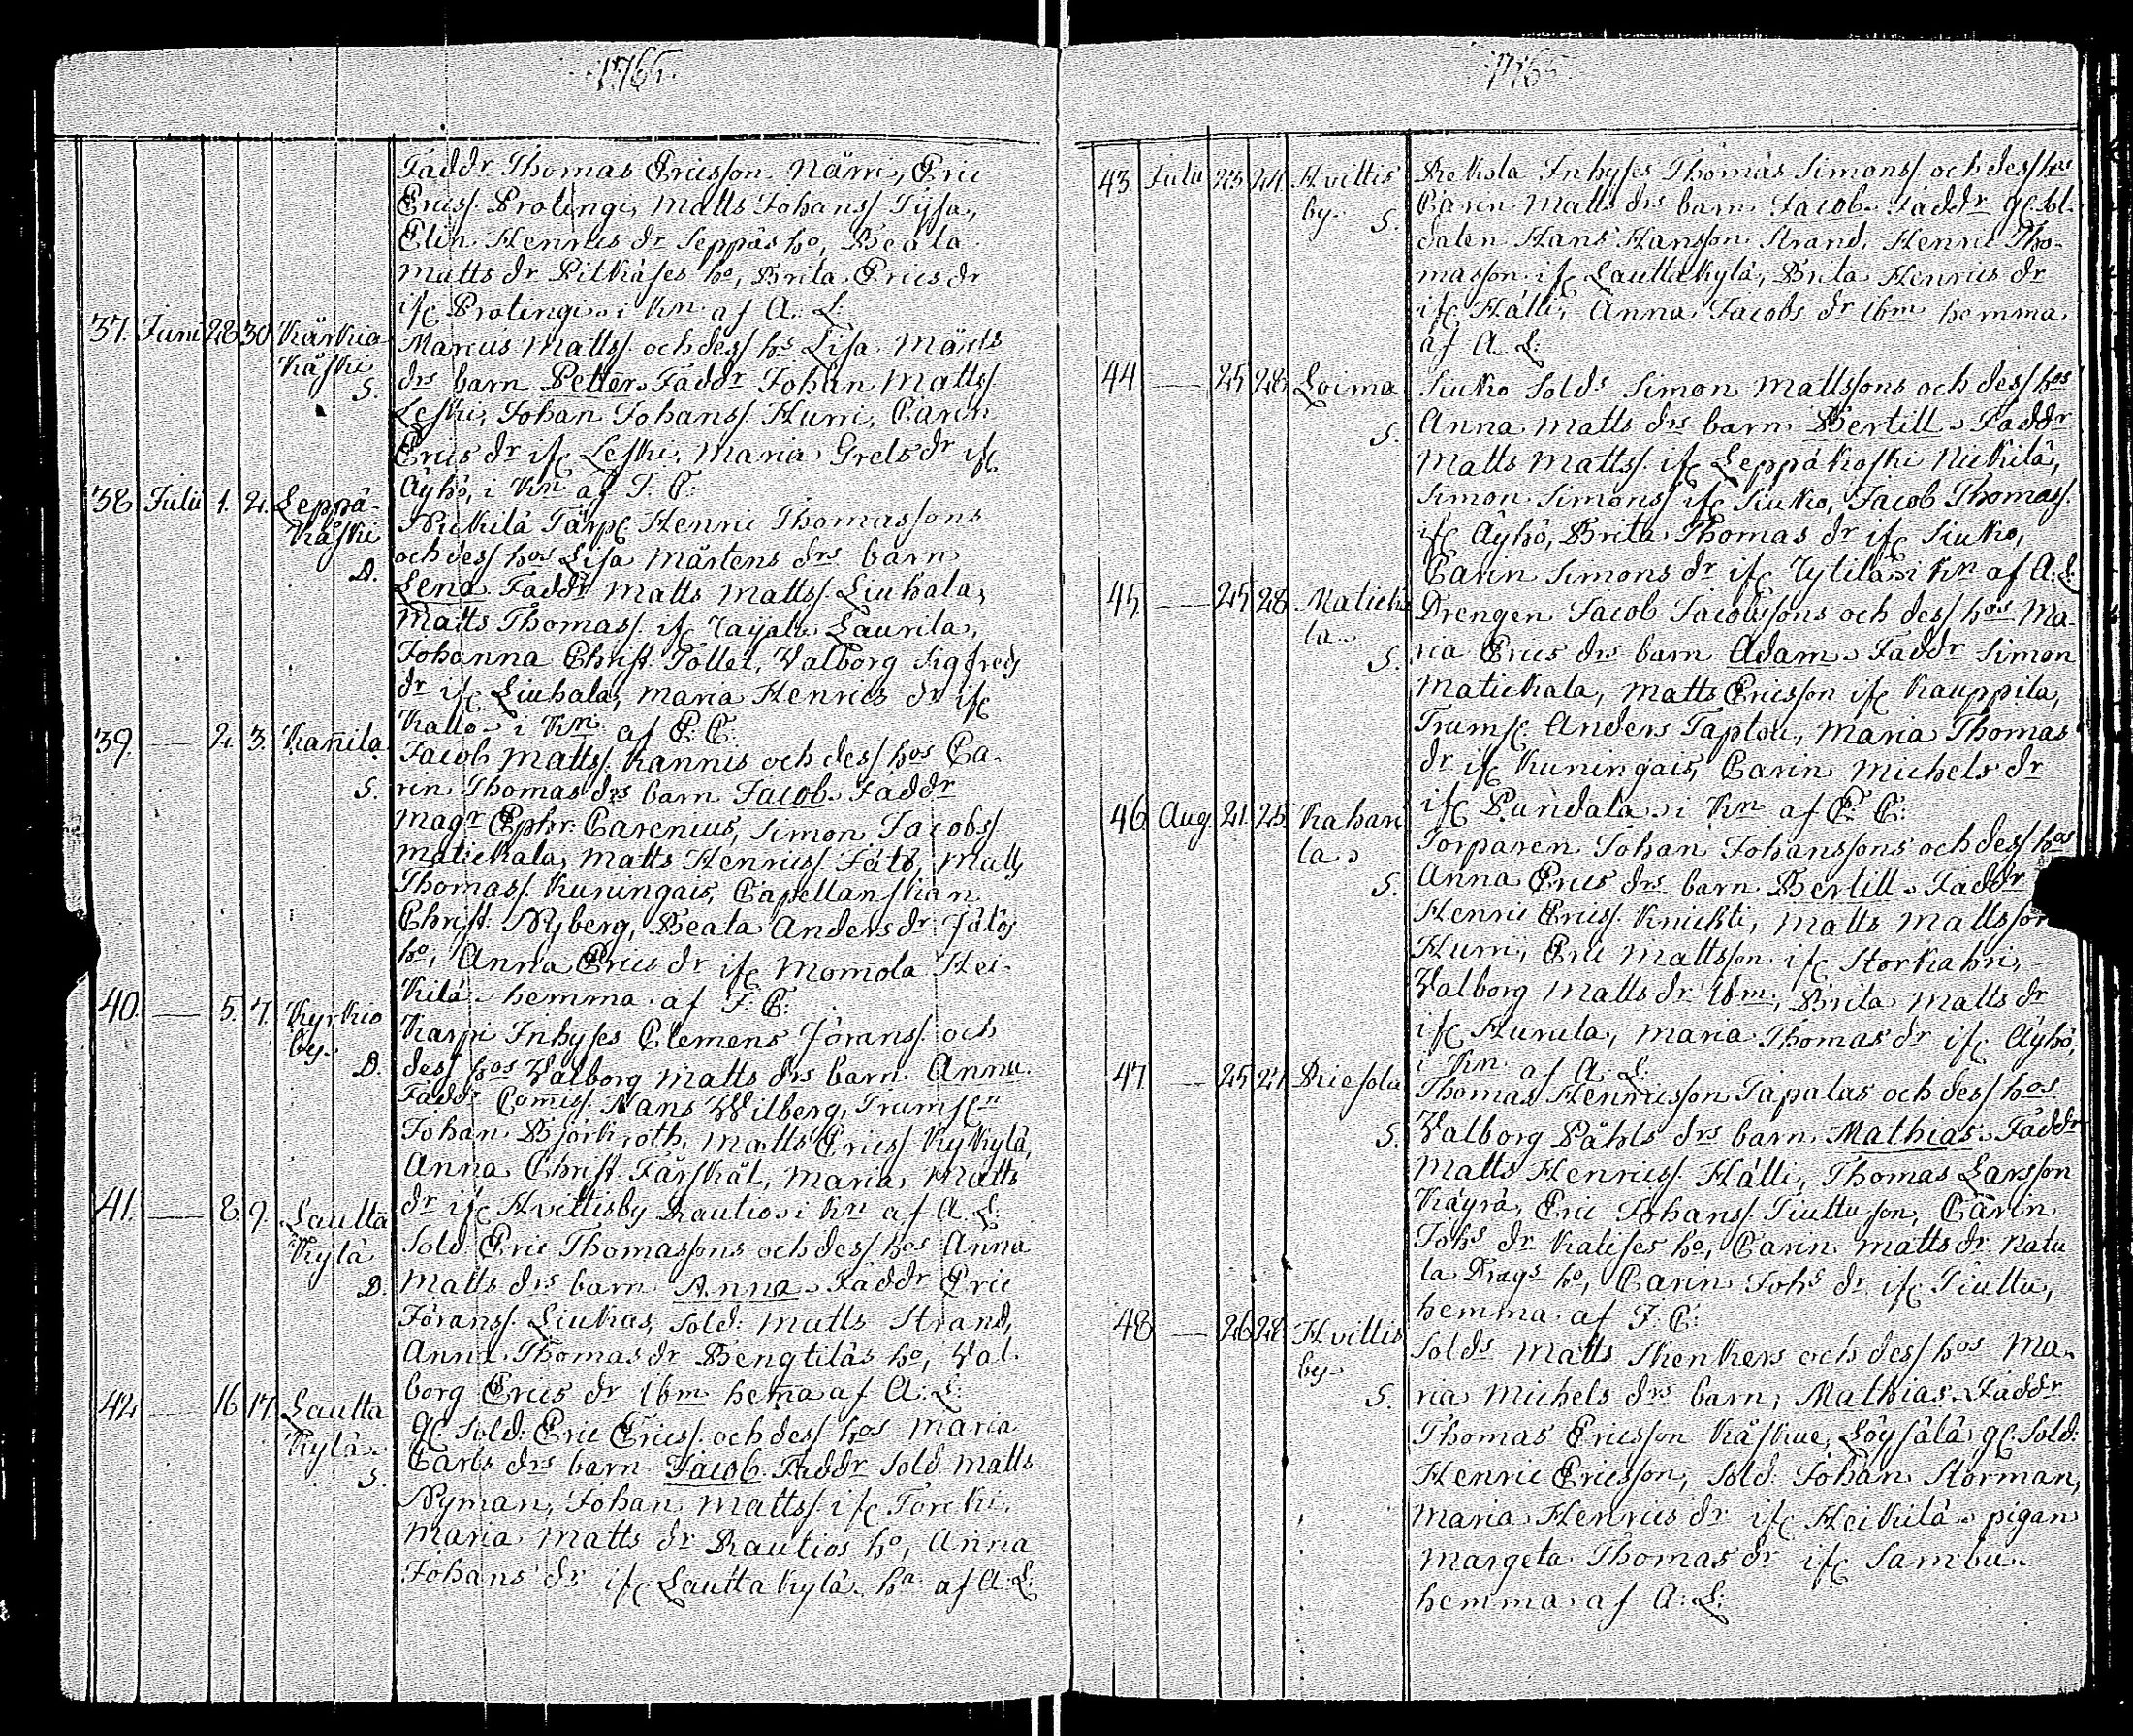 1765.
Faddr Thomas Ericsson Närvi, Eric
Ericss. Prolingi, Matts Johanss Tyssa,
Elin Henrics dr Seppäs ho, Beata
Matts dr Pitkäses ho, Brita Erics dr
ifr Prolingi. i Kn af A: L:
37. Juni 28 30 Kärkia Kåski S. Marcus Mattss. och dess hs Lisa Märts
drs barn Petter. Faddr Johan Mattss.
Leski, Johan Johanss. Hurri, Carin
Erics dr ifr Leski, Maria Grels dr ifr
Äyhö, i Kn af J. C.
38 Julii 1. 2. Leppä- Kåski D. Nickilä Tärpr Henric Thomassons
och dess hos Lisa Mårtens drs barn
Lena Faddr Matts Mattss. Liuhala,
Matts Thomass. ifr Laurila,
Johanna Christ. Pollet, Valborg Sigfreds
dr ifr Liuhala, Maria Henrics dr ifr
Kallo. i Kn af E: C:
39. — 2. 3. Kañila S. Jacob Mattss. Kannis och dess hos Ca-
rin Thomas drs barn Jacob. Faddr
Magr Ephr: Carenius, Simon Jacobss
Matickala, Matts Henricss. Jätö, Matts
Thomass. Kuningais, Capellanskan
Christ: Nyberg, Beata Anders dr Jätös
ho, Anna Erics dr ifr Mom̃ola Hei-
kilä. hemma af J: C:
40. — 5. 7. Kyrkio by. D. Karpi Inhyses Clemens Jöranss. och
dess hos Valborg Matts drs barn Anna.
Faddr Comiss. Hans Wilberg, Trumsln
Johan Björkroth, Matts Ericss Kykylä,
Anna Christ. Färskål, Maria Matts
dr ifr Hvittisby Rautio. i Kn af A. L:
41. — 8. 9. Lautta Kylä D. Sold: Eric Thomassons och dess hos Anna
Matts drs barn Anna. Faddr Eric
Jöranss. Liukas, Sold: Matts Strand,
Anna Thomas dr Bengtiläs ho, Val-
borg Erics dr ibm. hem̃a af A: L:
42. — 16 17. Lautta Kylä. S. gl. Sold: Eric Ericss. och dess hos Maria
Carls drs barn Jacob. Faddr Sold. Matts
Nyman, Johan Mattss. ifr Torcki,
Maria Matts dr Rautios ho, Anna
Johans dr ifr Lauttakylä. ha af A: L:
1765
43. Julii 23 24. Hvittis by. S. Rekola Inhyses Thomas Simonss. och dess hos
Carin Matts drs barn Jacob. Faddr gl. Sol-
daten Hans Hansson Strand, Henric Tho-
masson ifr Lauttakylä, Brita Henrics dr
ifr Hälli, Anna Jacobs dr ibm hemma
af A. L:
44 — 25 28 Loima S. Siuko Solds Simon Mattssons och dess hos
Anna Matts drs barn Bertill. Faddr
Matts Mattss. ifr Leppäkoski Nickilä,
Simon Simonss ifr Siuko, Jacob Thomass.
ifr Äyhö, Brita Thomas dr ifr Siuko,
Carin Simons dr ifr Sytilä. i Kn af A: L:
45 — 25 28 Maticka la. S. Drengen Jacob Jacobssons och dess hos Ma-
ria Erics drs barn Adam. Faddr Simon
Matickala, Matts Ericsson ifr Kauppila,
Trumsl. Anders Taptou, Maria Thomas
dr ifr Kuningais, Carin Michels dr
ifr Pundala. i Kn af E: C:
46. Aug 21. 25. Kahari la. S. Torparen Johan Johanssons och dess hos
Anna Erics drs barn Bertill. Faddr
Henric Ericss. Knickti, Matts Mattsson
Hurri, Eric Mattsson ifr Storkahri,
Valborg Matts dr ibm; Brita Matts dr
ifr Hurula, Maria Thomas dr ifr Äyhö,
i Kn af A: L.
47. — 25 27. Riesola S. Thomas Henricsson Tapalas och dess hos
Valborg Påhls drs barn Mathias. Faddr
Matts Henricss. Hälli, Thomas Larsson
Käyrä, Eric Johanss. Tiuttu son, Carin
Johs dr Kalises ho, Carin Matts dr Natu
la Drags ho, Carin Johs dr ifr Tiuttu,
hemma af J: C:
48 — 26 28 Hvittis by. S. Solds Matts Skenkers och dess hos Ma-
ria Michels drs barn, Mathias. Faddr
Thomas Ericsson Kåskue, Löysälä, gl. Sold:
Henric Ericsson, Sold: Johan Storman,
Maria Henrics dr ifr Heikilä. pigan
Margeta Thomas dr ifr Sambu.
hemma af A: L: